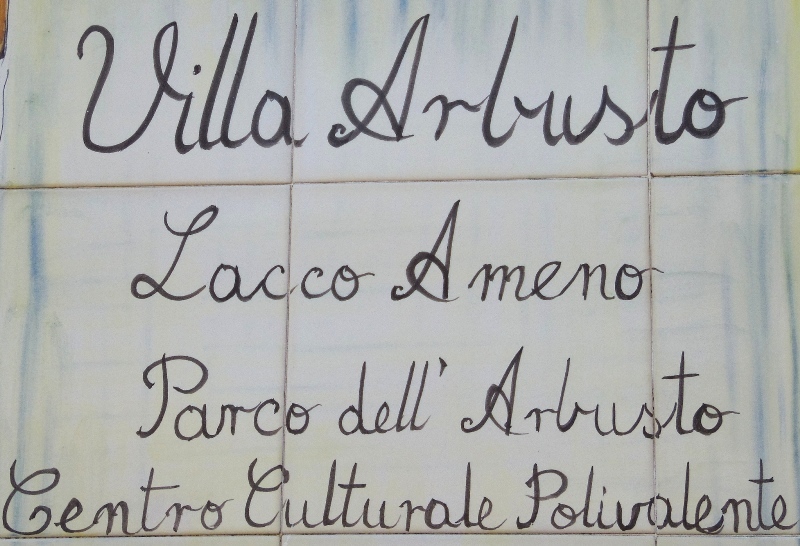 Villa Arbusto
Lacco Ameno
Parco dell' Arbusto
Centro Culturale Polivalente